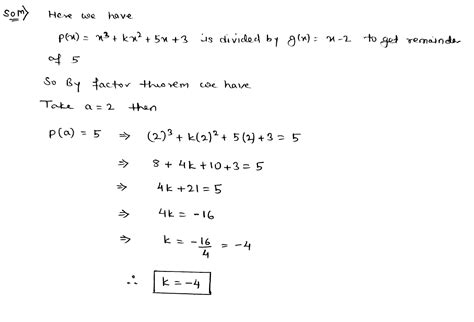 Soln) Here we have
p(x) = x³ + kx² + 5x + 3 is divided by g(x) = x-2 to get remainder
of 5
So By factor theorem we have
Take a = 2 then
p(a) = 5 ⇒ (2)³ + k(2)² + 5(2) + 3 = 5
⇒ 8 + 4k + 10 + 3 = 5
⇒ 4k + 21 = 5
⇒ 4k = -16
⇒ k = -16/4 = -4
∴ k = -4